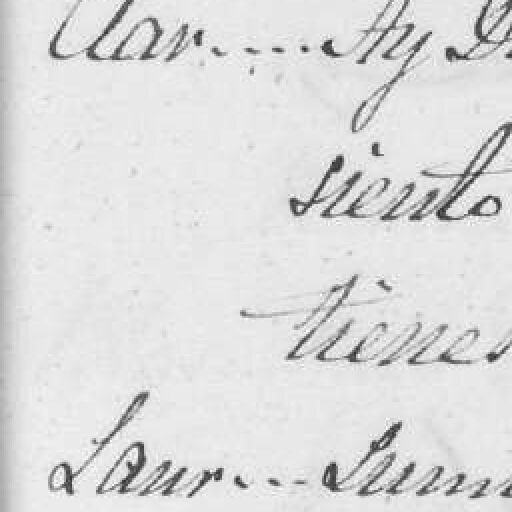 Clar..... Ay D
siento
tienes
Laur... Sum